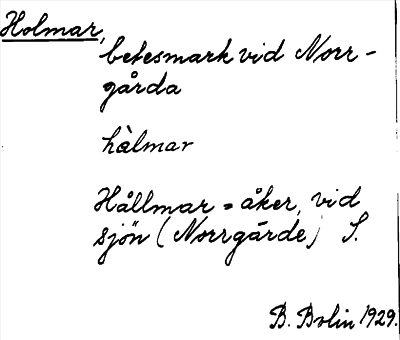 Holmar,
betesmark vid Norr-
gårda
hàlmar
Hållmar = åker, vid
sjön (Norrgårde) S.
B. Bolin 1929.